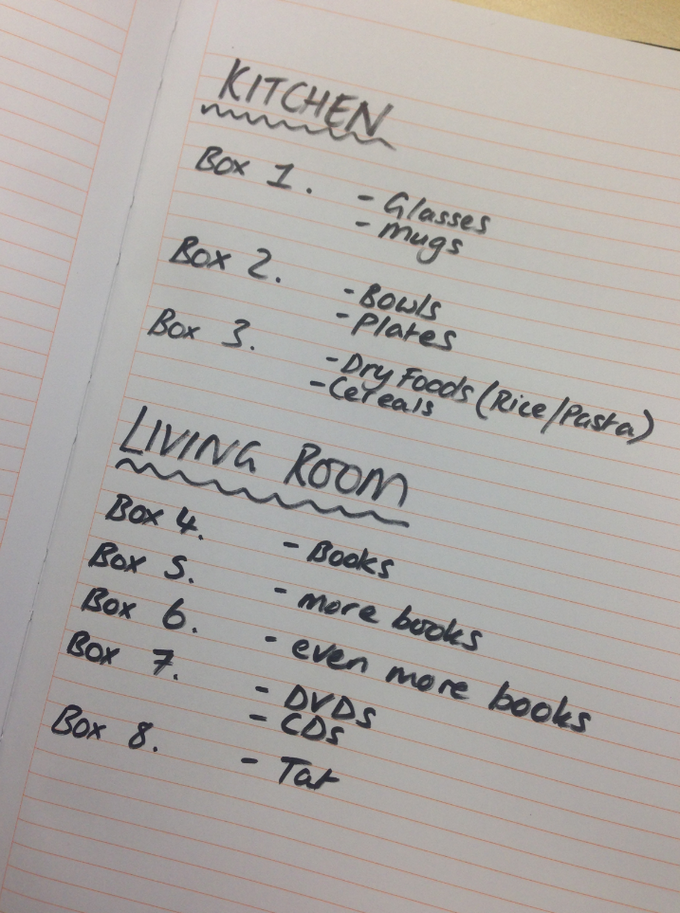 KITCHEN
Box 1. - Glasses
- Mugs
Box 2. - Bowls
- Plates
Box 3. - Dry Foods (Rice/Pasta)
- Cereals
LIVING ROOM
Box 4. - Books
Box 5. - more books
Box 6. - even more books
Box 7. - DVDs
- CDs
Box 8. - Tat